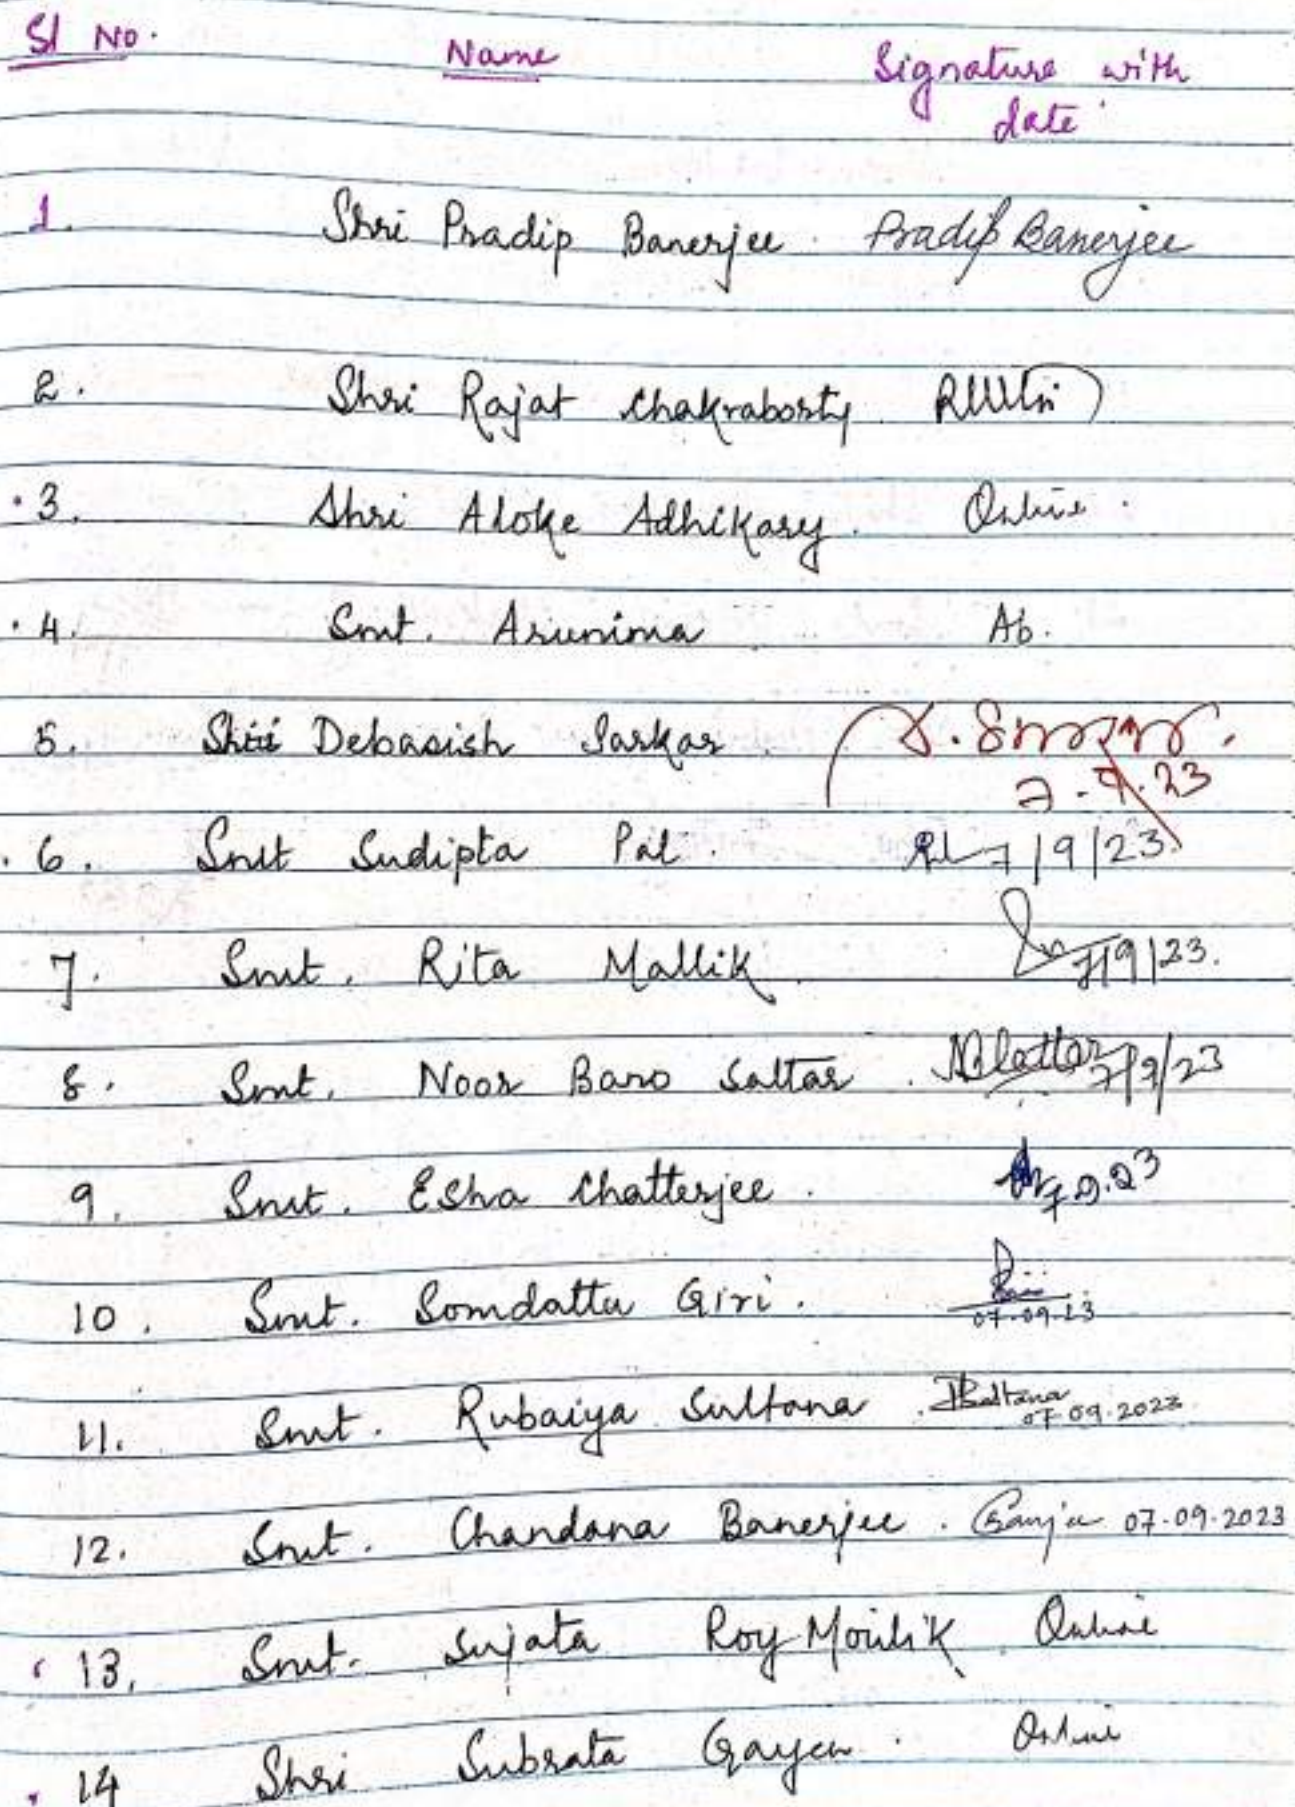 Sl No. Name Signature with
date
1. Shri Pradip Banerjee. Pradip Banerjee
2. Shri Rajat Chakraborty
3. Shri Aloke Adhikary. Online.
4. Smt. Arunima Ab.
5. Shri Debasish Sarkar
7.9.23
6. Smt Sudipta Pal. 7/9/23
7. Smt. Rita Mallik 7/9/23.
8. Smt. Noor Bano Sattar. NBSattar 7/9/23
9. Smt. Esha Chatterjee. 7.9.23
10. Smt. Somdatta Giri.
07.09.23
11. Smt. Rubaiya Sultana. RSultana
07.09.2023
12. Smt. Chandana Banerjee. 07.09.2023
13. Smt. Sujata Roy Moulik Online
14 Shri Subrata Gayen. Online